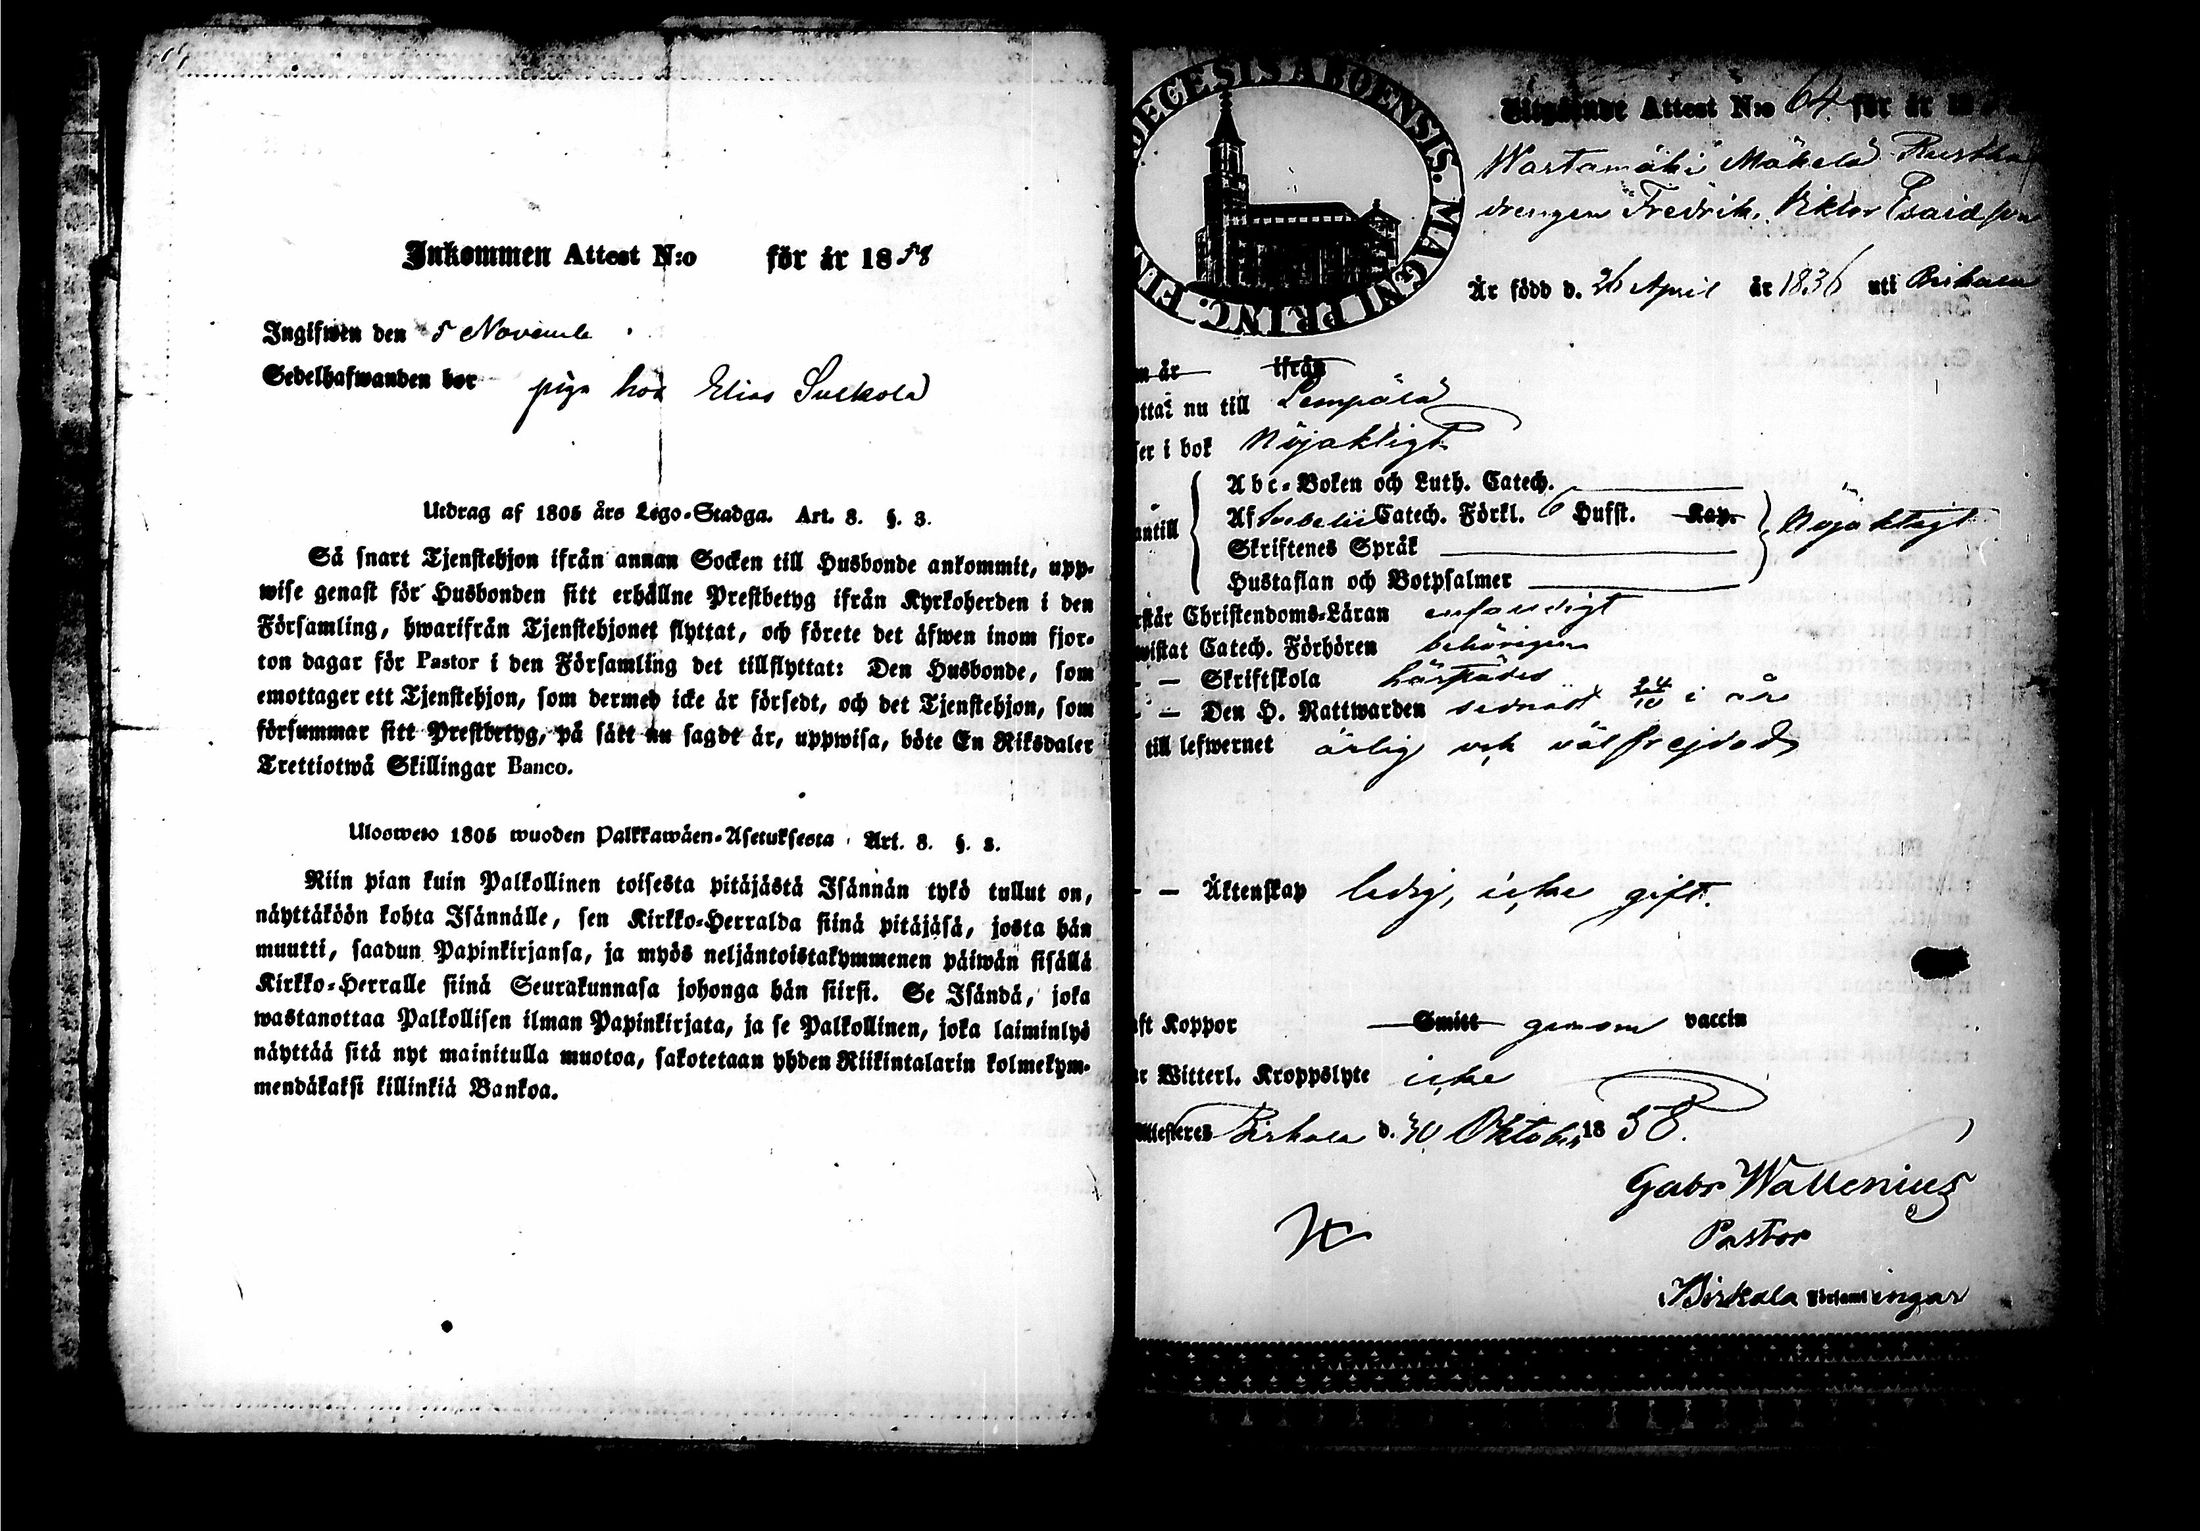 Inkommen Attest N:o för år 1858
Ingifwen den 5 Novemb
Sedelhafwanden bor piga hos Elias Suckola
Utdrag af 1805 års Lego-Stadga. Art. 8. §. 3.
Så snart Tjenstehjon ifrån annan Socken till Husbonde ankommit, upp-
wise genast för Husbonden sitt erhållne Prestbetyg ifrån Kyrkoherden i den
Församling, hwarifrån Tjenstehjonet flyttat, och förete det äfwen inom fjor-
ton dagar för Pastor i den Församling det tillflyttat: Den Husbonde, som
emottager ett Tjenstehjon, som dermed icke är försedt, och det Tjenstehjon, som
försummar sitt Prestbetyg, på sätt nu sagdt är, uppwisa, böte En Riksdaler
Trettiotwå Skillingar Banco.
Ulosweto 1805 wuoden Palkkawäen-Asetuksesta Art. 8. §. 3.
Niin pian kuin Palkollinen toisesta pitäjästä Isännän tykö tullut on,
näyttäköön kohta Isännälle, sen Kirkko-Herralda siinä pitäjäsä, josta hän
muutti, saadun Papinkirjansa, ja myös neljäntoistakymmenen päiwän sisällä
Kirkko-Herralle siinä Seurakunnasa johonga hän siirsi. Se Isändä, joka
wastanottaa Palkollisen ilman Papinkirjata, ja se Palkollinen, joka laiminlyö
näyttää sitä nyt mainitulla muotoa, sakotetaan yhden Riikintalarin kolmekym-
mendäkaksi killinkiä Bankoa.
DECESIS ABOENSIS. MAGNI PRINC. FIN
Utgående Attest N:o 64 för år 18
Wartamäki Mäkelä Rustha
drengen Fredrik Viktor Esaidson
Är född d. 26 April år 1836 uti Birkala
m år ifrån
yttat nu till Lempälä
ser i bok Nöjaktigt
antill Abc-Boken och Luth. Catech.
Af Svebelii Catech. Förkl. 6 Hufst. Kap. Nöjaktigt
Skriftenes Språk
Hustaflan och Botpsalmer
rstår Christendoms-Läran enfaldigt
wistat Catech. Förhören behörigen
– – Skriftskola härstädes
– – Den H. Nattwarden sednast 24/10 i år
till lefwernet ärlig och välfrejdad
– – Äktenskap ledig, icke gift.
aft Koppor Smitt genom vaccin
ar Witterl. Kroppslyte icke
Attesteres Birkala d. 30 Oktober 1858.
Gabr Wallenius
Pastor
Birkala Församlingar